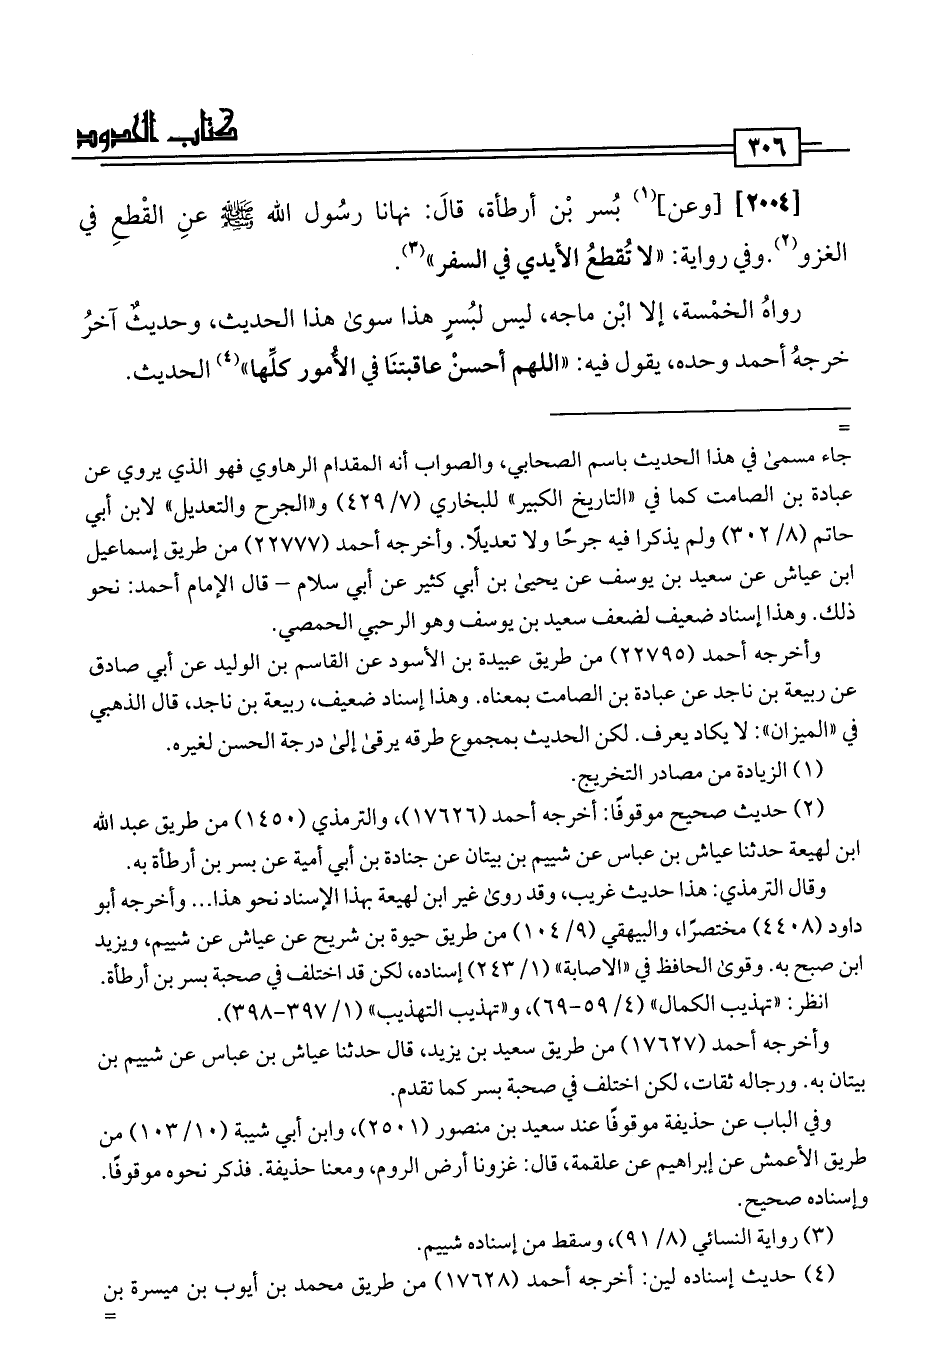 كتاب الحدود
٣٠٦
[٢٠٠٤] [وعن](١) بُسر بْن أرطأة، قالَ: نهانا رسُول الله ﷺ عنِ القْطعِ في
الغزو(٢). وفي رواية: «لا تُقطعُ الأيدي في السفر»(٣).
رواهُ الخمْسة، إلا ابْن ماجه، ليس لبُسرٍ هذا سوىٰ هذا الحديث، وحديثٌ آخرُ
خرجهُ أحمد وحده، يقول فيه: «اللهم أحسنْ عاقبتنَا في الأُمور كلِّها»(٤) الحديث.
=
جاء مسمىٰ في هذا الحديث باسم الصحابي، والصواب أنه المقدام الرهاوي فهو الذي يروي عن
عبادة بن الصامت كما في «التاريخ الكبير» للبخاري (٧/ ٤٢٩) و«الجرح والتعديل» لابن أبي
حاتم (٨/ ٣٠٢) ولم يذكرا فيه جرحًا ولا تعديلًا. وأخرجه أحمد (٢٢٧٧٧) من طريق إسماعيل
ابن عياش عن سعيد بن يوسف عن يحيىٰ بن أبي كثير عن أبي سلام – قال الإمام أحمد: نحو
ذلك. وهذا إسناد ضعيف لضعف سعيد بن يوسف وهو الرحبي الحمصي.
وأخرجه أحمد (٢٢٧٩٥) من طريق عبيدة بن الأسود عن القاسم بن الوليد عن أبي صادق
عن ربيعة بن ناجد عن عبادة بن الصامت بمعناه. وهذا إسناد ضعيف، ربيعة بن ناجد، قال الذهبي
في «الميزان»: لا يكاد يعرف. لكن الحديث بمجموع طرقه يرقىٰ إلىٰ درجة الحسن لغيره.
(١) الزيادة من مصادر التخريج.
(٢) حديث صحيح موقوفًا: أخرجه أحمد (١٧٦٢٦)، والترمذي (١٤٥٠) من طريق عبد الله
ابن لهيعة حدثنا عياش بن عباس عن شييم بن بيتان عن جنادة بن أبي أمية عن بسر بن أرطأة به.
وقال الترمذي: هذا حديث غريب، وقد روىٰ غير ابن لهيعة بهذا الإسناد نحو هذا... وأخرجه أبو
داود (٤٤٠٨) مختصرًا، والبيهقي (٩/ ١٠٤) من طريق حيوة بن شريح عن عياش عن شييم، ويزيد
ابن صبح به. وقوىٰ الحافظ في «الاصابة» (١/ ٢٤٣) إسناده، لكن قد اختلف في صحبة بسر بن أرطأة.
انظر: «تهذيب الكمال» (٤/ ٥٩-٦٩)، و«تهذيب التهذيب» (١/ ٣٩٧-٣٩٨).
وأخرجه أحمد (١٧٦٢٧) من طريق سعيد بن يزيد، قال حدثنا عياش بن عباس عن شييم بن
بيتان به. ورجاله ثقات، لكن اختلف في صحبة بسر كما تقدم.
وفي الباب عن حذيفة موقوفًا عند سعيد بن منصور (٢٥٠١)، وابن أبي شيبة (١٠/ ١٠٣) من
طريق الأعمش عن إبراهيم عن علقمة، قال: غزونا أرض الروم، ومعنا حذيفة. فذكر نحوه موقوفًا.
وإسناده صحيح.
(٣) رواية النسائي (٨/ ٩١)، وسقط من إسناده شييم.
(٤) حديث إسناده لين: أخرجه أحمد (١٧٦٢٨) من طريق محمد بن أيوب بن ميسرة بن
=